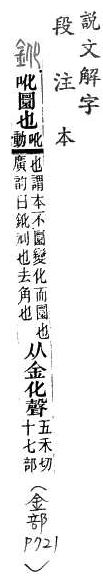 說文解字
段注本
鈋 吪圜也
吪動
也謂本不圜變化而圜也
廣韵曰鈋刓也去角也
从金化聲
五禾切
十七部
(金部 P721)